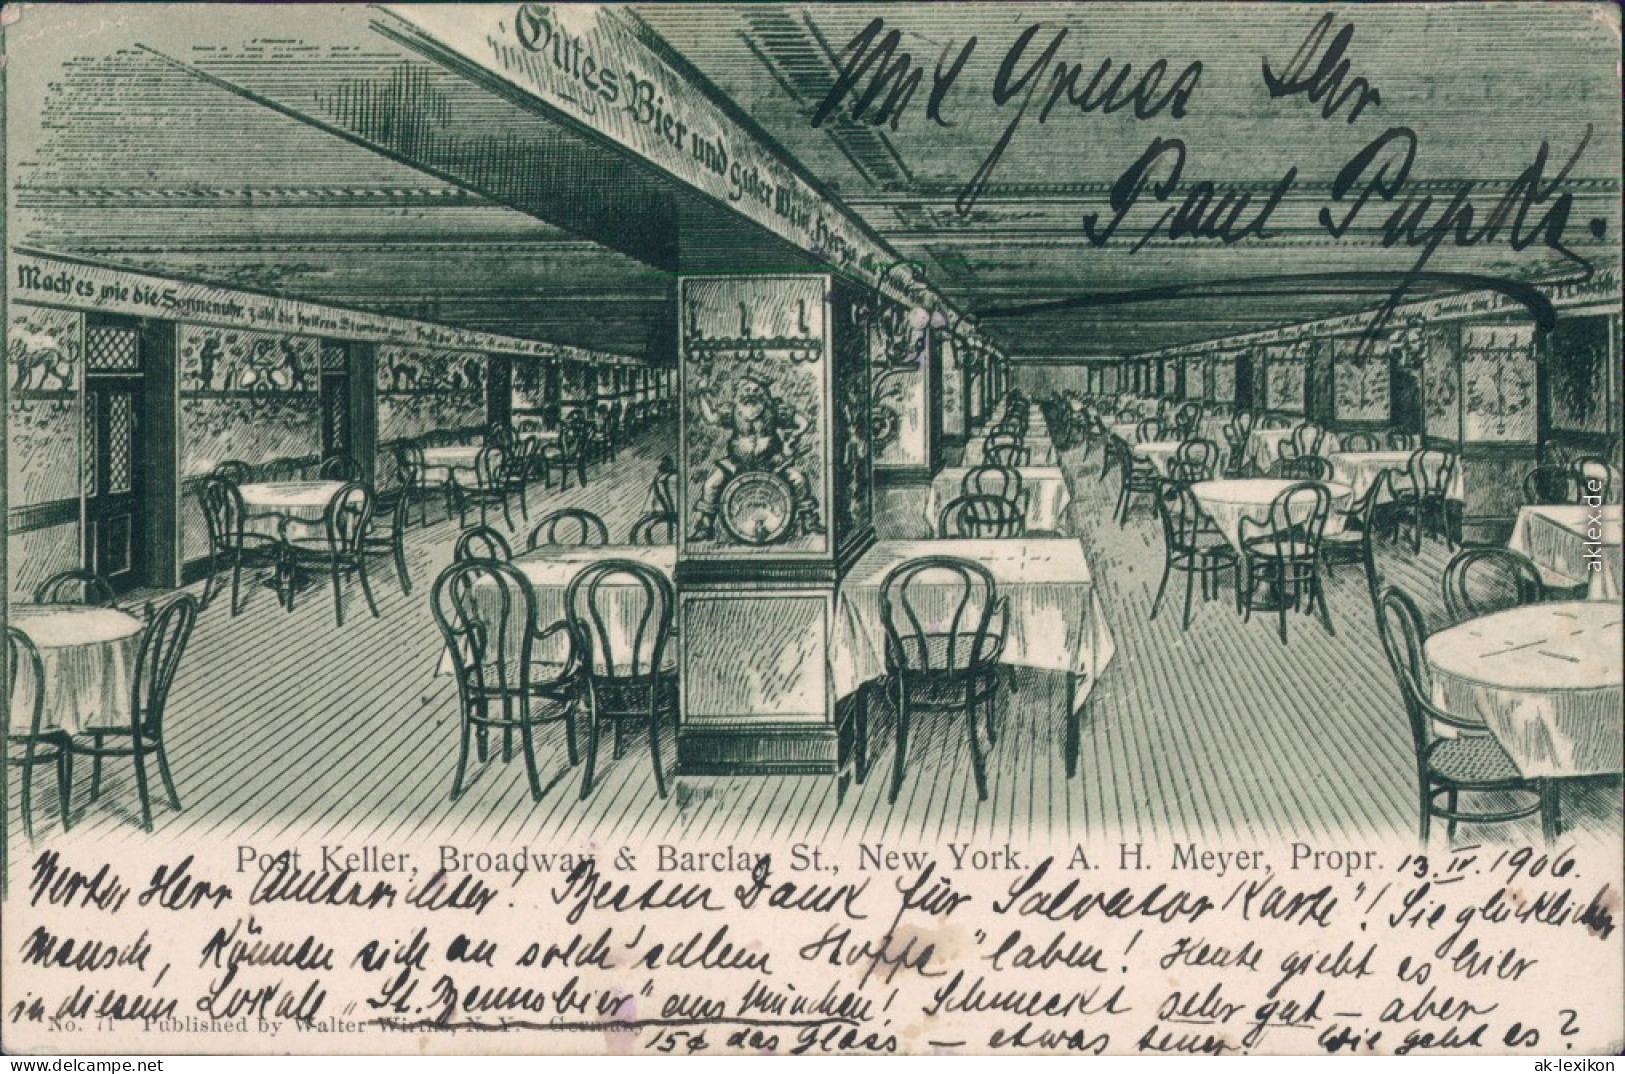 Mit Gruss Ihr
Paul
Gutes Bier und guter Wein
Mach'es wie die Sonnenuhr, zähl die heitern Stunden nur.
Post Keller, Broadway & Barclay St., New York. A. H. Meyer, Propr.
13.IV.1906.
Werter Herr Amtsrichter! Besten Dank für "Salvator Karte"! Sie glücklicher
Mensch, können sich an solch' edlem "Stoffe" laben! Heute giebt es hier
in diesem Lokale "St. Bennobier" aus München! Schmeckt sehr gut – aber
No. 71 Published by Walter Wirths, N. Y. Germany
15¢ das Glass – etwas teuer! Wie geht es?
aklex.de
© ak-lexikon.de
ak-lexikon